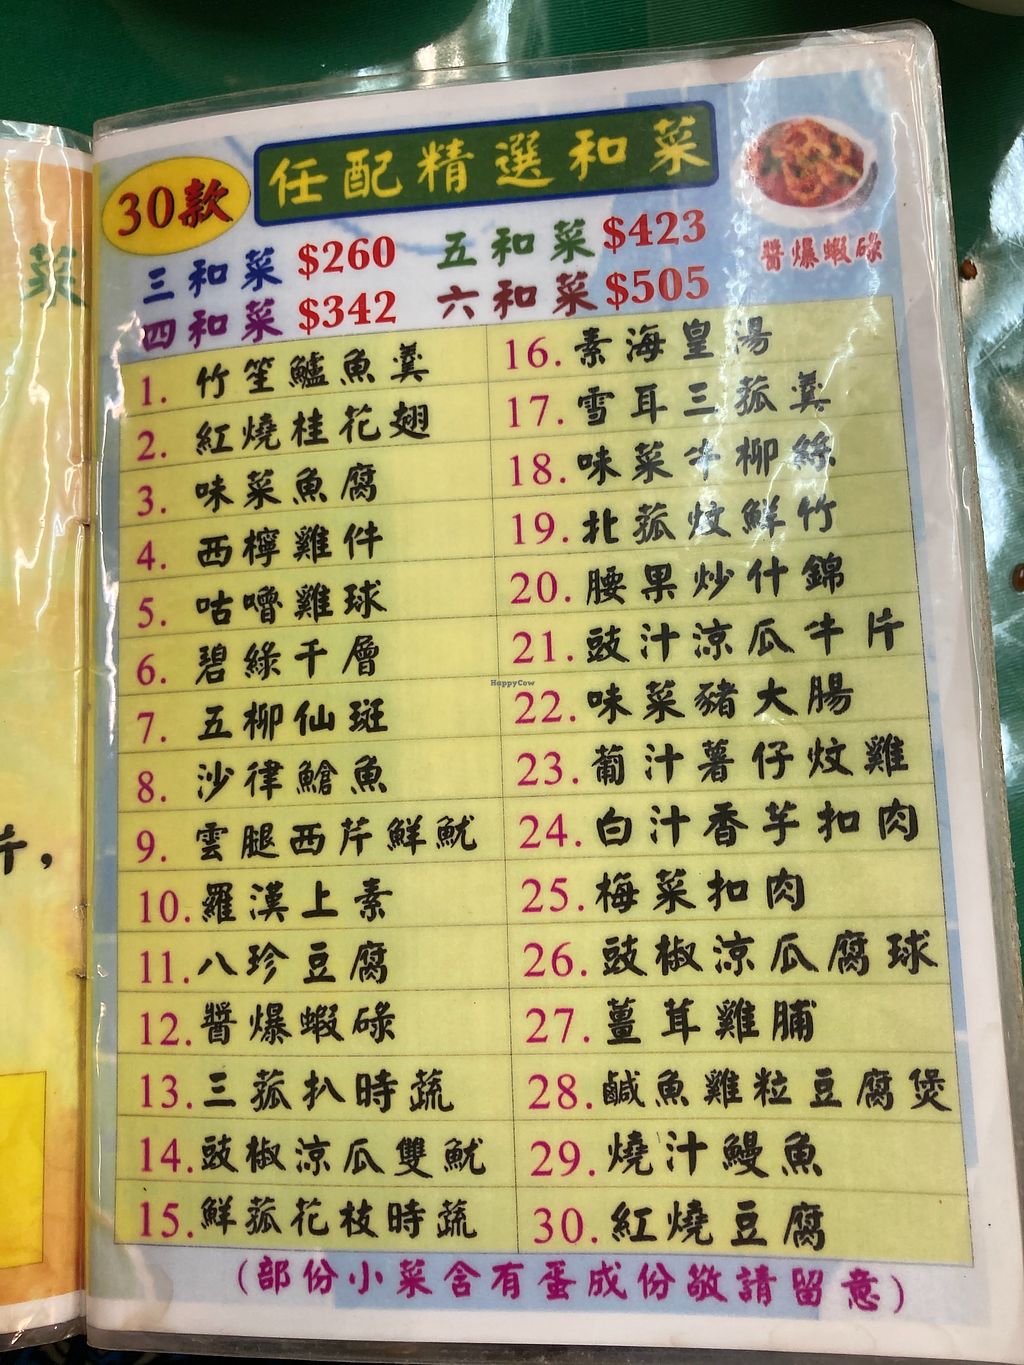 菜
片，
30款
任配精選和菜
三和菜 $260
五和菜 $423
四和菜 $342
六和菜 $505
醬爆蝦碌
1. 竹笙鱸魚羹
2. 紅燒桂花翅
3. 味菜魚腐
4. 西檸雞件
5. 咕嚕雞球
6. 碧綠千層
7. 五柳仙斑
8. 沙律鯧魚
9. 雲腿西芹鮮魷
10. 羅漢上素
11. 八珍豆腐
12. 醬爆蝦碌
13. 三菰扒時蔬
14. 豉椒涼瓜雙魷
15. 鮮菰花枝時蔬
16. 素海皇湯
17. 雪耳三菰羹
18. 味菜牛柳絲
19. 北菰炆鮮竹
20. 腰果炒什錦
21. 豉汁涼瓜牛片
22. 味菜豬大腸
23. 葡汁薯仔炆雞
24. 白汁香芋扣肉
25. 梅菜扣肉
26. 豉椒涼瓜腐球
27. 薑茸雞脯
28. 鹹魚雞粒豆腐煲
29. 燒汁鰻魚
30. 紅燒豆腐
HappyCow
(部份小菜含有蛋成份敬請留意)